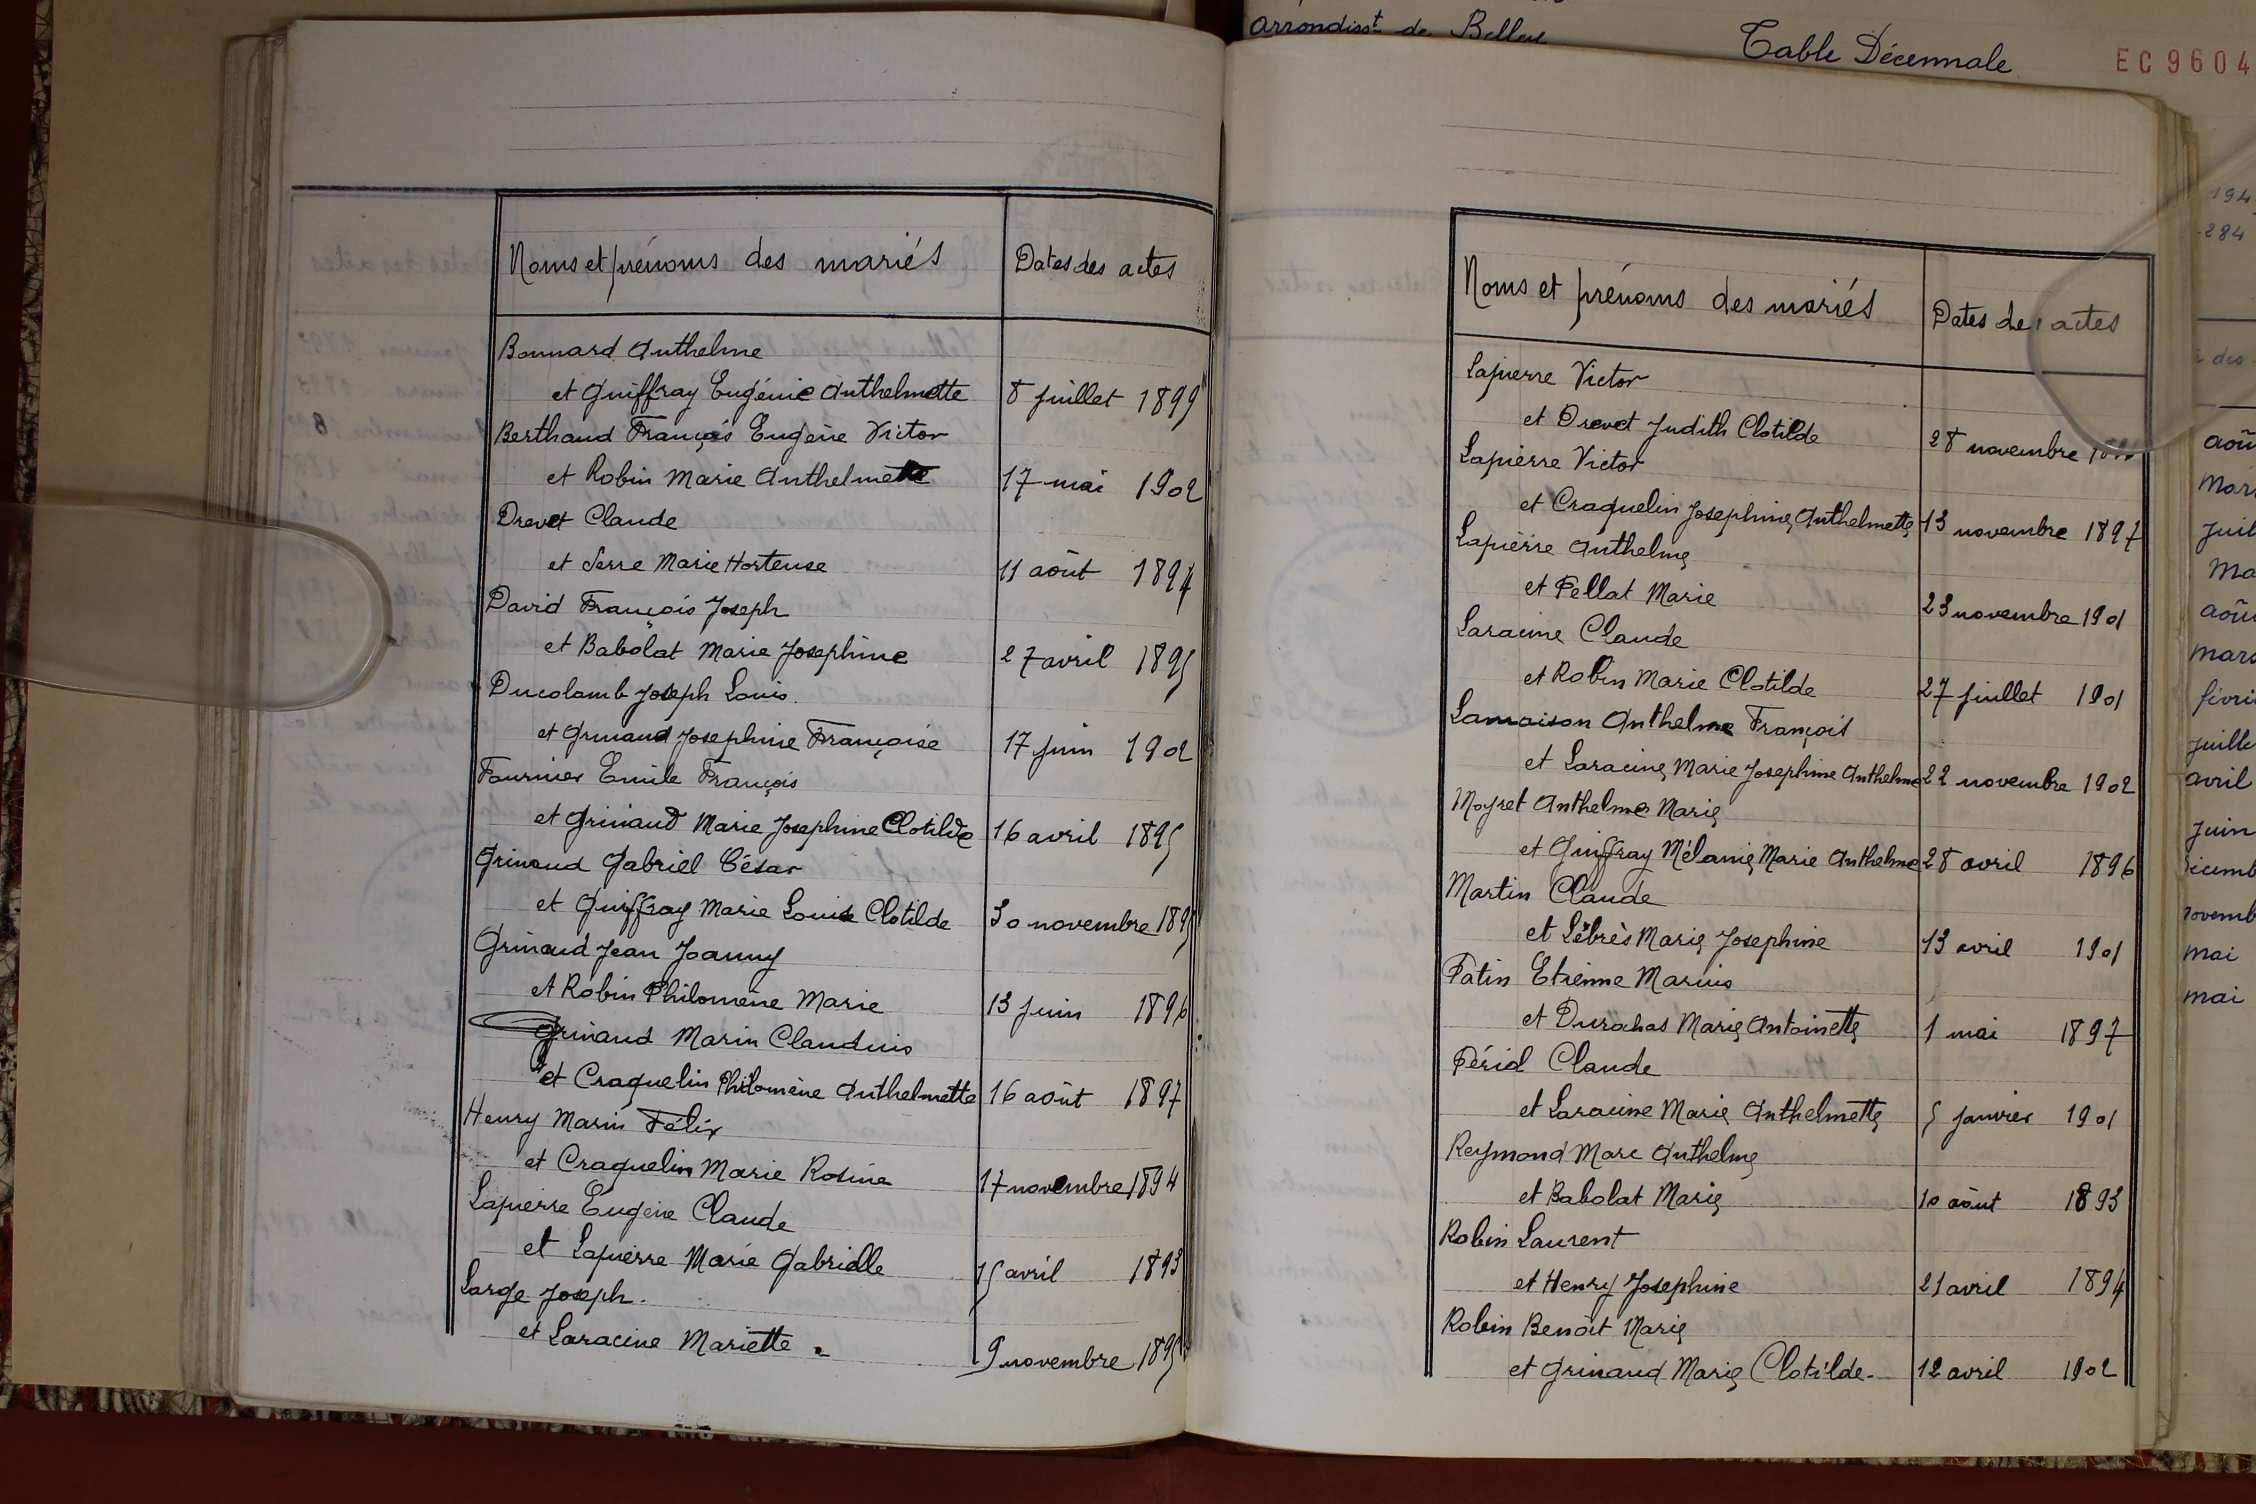 arrondisst de Belley
Table Décennale
EC9604
Noms et prénoms des mariés
Dates des actes
Bonnard Anthelme
et Guiffray Eugénie Anthelmette 8 juillet 1899
Berthaud François Eugène Victor
et Robin Marie Anthelmette 17 mai 1902
Drevet Claude
et Serre Marie Hortense 11 août 1894
David François Joseph
et Babolat Marie Josephine 27 avril 1895
Ducolomb Joseph Louis.
et Grinand Josephine Françoise 17 juin 1902
Fournier Emile François
et Grinand Marie Josephine Clotilde 16 avril 1895
Grinand Gabriel César
et Guiffray Marie Louise Clotilde 30 novembre 1895
Grinand Jean Joanny
et Robin Philomène Marie 13 juin 1896
Grinand Marin Claudius
et Craquelin Philomène Anthelmette 16 août 1897
Henry Marin Félix
et Craquelin Marie Rosine 17 novembre 1894
Lapierre Eugène Claude
et Lapierre Marie Gabrielle 15 avril 1893
Large Joseph.
et Laracine Mariette. 9 novembre 1895
Noms et prénoms des mariés
Dates des actes
Lapierre Victor
et Drevet Judith Clotilde 28 novembre
Lapierre Victor
et Craquelin Josephine Anthelmette 13 novembre 1897
Lapierre Anthelme
et Pellat Marie 23 novembre 1901
Laracine Claude
et Robin Marie Clotilde 27 juillet 1901
Lamaison Anthelme François
et Laracine Marie Josephine Anthelme 22 novembre 1902
Moyret Anthelme Marie
et Guiffray Mélanie Marie Anthelme 28 avril 1896
Martin Claude
et Lèbrès Marie Josephine 13 avril 1901
Patin Etienne Marius
et Marie Antoinette 1 mai 1897
Périd Claude
et Laracine Marie Anthelmette 5 janvier 1901
Reymond Marc Anthelme
et Babolat Marie 10 août 1893
Robin Laurent
et Henry Josephine 21 avril 1894
Robin Benoit Marie
et Grinand Marie Clotilde. 12 avril 1902
194
284
août
mars
juil
ma
août
mars
févri
juille
avril
juin
décemb
novemb
mai
mai